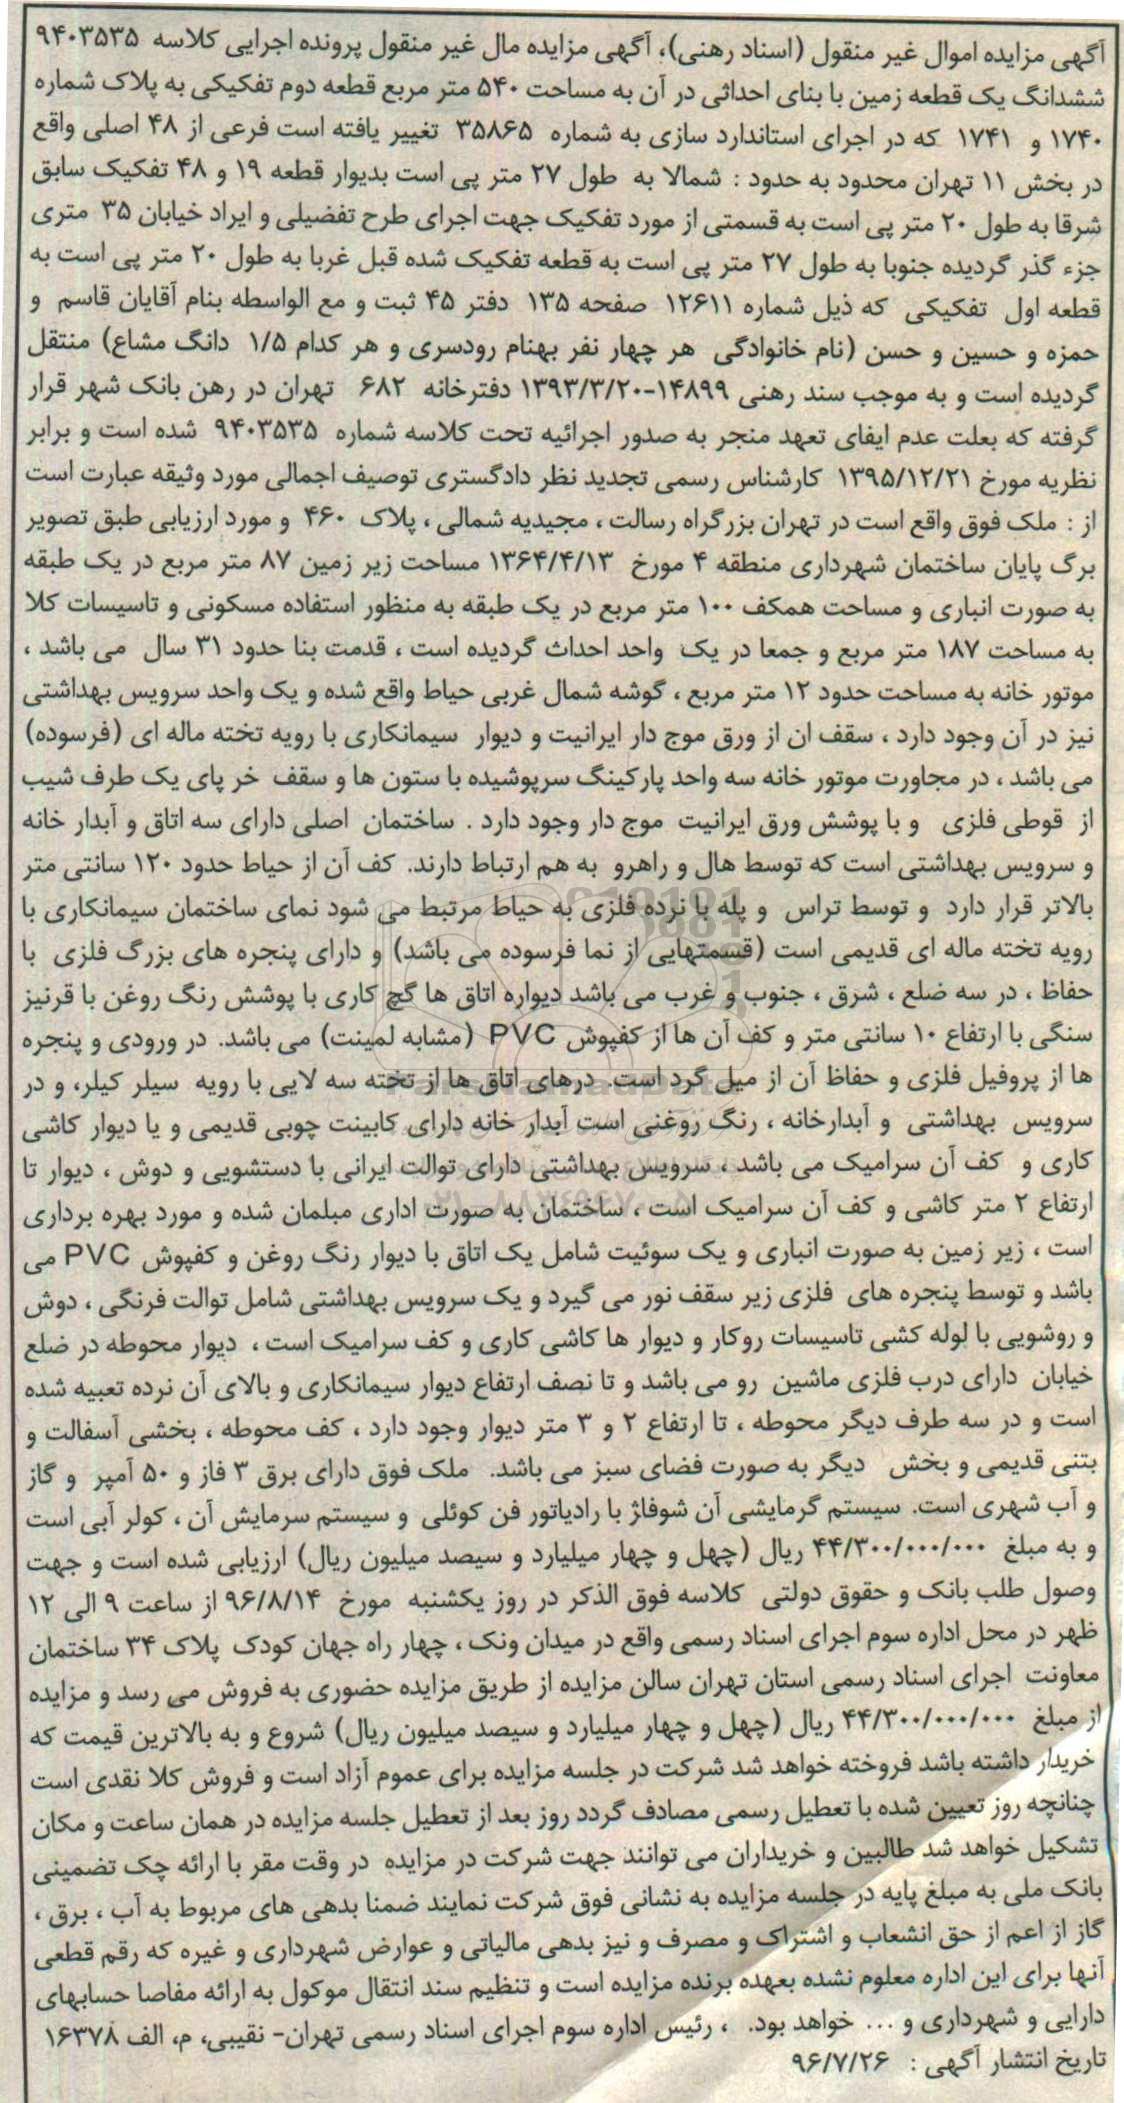 آگهی مزایده اموال غیر منقول (اسناد رهنی)، آگهی مزایده مال غیر منقول پرونده اجرایی کلاسه ۹۴۰۳۵۳۵
ششدانگ یک قطعه زمین با بنای احداثی در آن به مساحت ۵۴۰ متر مربع قطعه دوم تفکیکی به پلاک شماره
۱۷۴۰ و ۱۷۴۱ که در اجرای استاندارد سازی به شماره ۳۵۸۶۵ تغییر یافته است فرعی از ۴۸ اصلی واقع
در بخش ۱۱ تهران محدود به حدود : شمالا به طول ۲۷ متر پی است بدیوار قطعه ۱۹ و ۴۸ تفکیک سابق
شرقا به طول ۲۰ متر پی است به قسمتی از مورد تفکیک جهت اجرای طرح تفضیلی و ایراد خیابان ۳۵ متری
جزء گذر گردیده جنوبا به طول ۲۷ متر پی است به قطعه تفکیک شده قبل غربا به طول ۲۰ متر پی است به
قطعه اول تفکیکی که ذیل شماره ۱۲۶۱۱ صفحه ۱۳۵ دفتر ۴۵ ثبت و مع الواسطه بنام آقایان قاسم و
حمزه و حسین و حسن (نام خانوادگی هر چهار نفر بهنام رودسری و هر کدام ۱/۵ دانگ مشاع) منتقل
گردیده است و به موجب سند رهنی ۱۴۸۹۹-۱۳۹۳/۳/۲۰ دفترخانه ۶۸۲ تهران در رهن بانک شهر قرار
گرفته که بعلت عدم ایفای تعهد منجر به صدور اجرائیه تحت کلاسه شماره ۹۴۰۳۵۳۵ شده است و برابر
نظریه مورخ ۱۳۹۵/۱۲/۲۱ کارشناس رسمی تجدید نظر دادگستری توصیف اجمالی مورد وثیقه عبارت است
از : ملک فوق واقع است در تهران بزرگراه رسالت ، مجیدیه شمالی ، پلاک ۴۶۰ و مورد ارزیابی طبق تصویر
برگ پایان ساختمان شهرداری منطقه ۴ مورخ ۱۳۶۴/۴/۱۳ مساحت زیر زمین ۸۷ متر مربع در یک طبقه
به صورت انباری و مساحت همکف ۱۰۰ متر مربع در یک طبقه به منظور استفاده مسکونی و تاسیسات کلا
به مساحت ۱۸۷ متر مربع و جمعا در یک واحد احداث گردیده است ، قدمت بنا حدود ۳۱ سال می باشد ،
موتور خانه به مساحت حدود ۱۲ متر مربع ، گوشه شمال غربی حیاط واقع شده و یک واحد سرویس بهداشتی
نیز در آن وجود دارد ، سقف ان از ورق موج دار ایرانیت و دیوار سیمانکاری با رویه تخته ماله ای (فرسوده)
می باشد ، در مجاورت موتور خانه سه واحد پارکینگ سرپوشیده با ستون ها و سقف خر پای یک طرف شیب
از قوطی فلزی و با پوشش ورق ایرانیت موج دار وجود دارد . ساختمان اصلی دارای سه اتاق و آبدار خانه
و سرویس بهداشتی است که توسط هال و راهرو به هم ارتباط دارند. کف آن از حیاط حدود ۱۲۰ سانتی متر
بالاتر قرار دارد و توسط تراس و پله با نرده فلزی به حیاط مرتبط می شود نمای ساختمان سیمانکاری با
رویه تخته ماله ای قدیمی است (قسمتهایی از نما فرسوده می باشد) و دارای پنجره های بزرگ فلزی با
حفاظ ، در سه ضلع ، شرق ، جنوب و غرب می باشد دیواره اتاق ها گچ کاری با پوشش رنگ روغن با قرنیز
سنگی با ارتفاع ۱۰ سانتی متر و کف آن ها از کفپوش PVC (مشابه لمینت) می باشد. در ورودی و پنجره
ها از پروفیل فلزی و حفاظ آن از میل گرد است. درهای اتاق ها از تخته سه لایی با رویه سیلر کیلر، و در
سرویس بهداشتی و آبدارخانه ، رنگ روغنی است آبدار خانه دارای کابینت چوبی قدیمی و یا دیوار کاشی
کاری و کف آن سرامیک می باشد ، سرویس بهداشتی دارای توالت ایرانی با دستشویی و دوش ، دیوار تا
ارتفاع ۲ متر کاشی و کف آن سرامیک است ، ساختمان به صورت اداری مبلمان شده و مورد بهره برداری
است ، زیر زمین به صورت انباری و یک سوئیت شامل یک اتاق با دیوار رنگ روغن و کفپوش PVC می
باشد و توسط پنجره های فلزی زیر سقف نور می گیرد و یک سرویس بهداشتی شامل توالت فرنگی ، دوش
و روشویی با لوله کشی تاسیسات روکار و دیوار ها کاشی کاری و کف سرامیک است ، دیوار محوطه در ضلع
خیابان دارای درب فلزی ماشین رو می باشد و تا نصف ارتفاع دیوار سیمانکاری و بالای آن نرده تعبیه شده
است و در سه طرف دیگر محوطه ، تا ارتفاع ۲ و ۳ متر دیوار وجود دارد ، کف محوطه ، بخشی آسفالت و
بتنی قدیمی و بخش دیگر به صورت فضای سبز می باشد. ملک فوق دارای برق ۳ فاز و ۵۰ آمپر و گاز
و آب شهری است. سیستم گرمایشی آن شوفاژ با رادیاتور فن کوئلی و سیستم سرمایش آن ، کولر آبی است
و به مبلغ ۴۴/۳۰۰/۰۰۰/۰۰۰ ریال (چهل و چهار میلیارد و سیصد میلیون ریال) ارزیابی شده است و جهت
وصول طلب بانک و حقوق دولتی کلاسه فوق الذکر در روز یکشنبه مورخ ۹۶/۸/۱۴ از ساعت ۹ الی ۱۲
ظهر در محل اداره سوم اجرای اسناد رسمی واقع در میدان ونک ، چهار راه جهان کودک پلاک ۳۴ ساختمان
معاونت اجرای اسناد رسمی استان تهران سالن مزایده از طریق مزایده حضوری به فروش می رسد و مزایده
از مبلغ ۴۴/۳۰۰/۰۰۰/۰۰۰ ریال (چهل و چهار میلیارد و سیصد میلیون ریال) شروع و به بالاترین قیمت که
خریدار داشته باشد فروخته خواهد شد شرکت در جلسه مزایده برای عموم آزاد است و فروش کلا نقدی است
چنانچه روز تعیین شده با تعطیل رسمی مصادف گردد روز بعد از تعطیل جلسه مزایده در همان ساعت و مکان
تشکیل خواهد شد طالبین و خریداران می توانند جهت شرکت در مزایده در وقت مقر با ارائه چک تضمینی
بانک ملی به مبلغ پایه در جلسه مزایده به نشانی فوق شرکت نمایند ضمنا بدهی های مربوط به آب ، برق ،
گاز از اعم از حق انشعاب و اشتراک و مصرف و نیز بدهی مالیاتی و عوارض شهرداری و غیره که رقم قطعی
آنها برای این اداره معلوم نشده بعهده برنده مزایده است و تنظیم سند انتقال موکول به ارائه مفاصا حسابهای
دارایی و شهرداری و ... خواهد بود. ، رئیس اداره سوم اجرای اسناد رسمی تهران- نقیبی، م، الف ۱۶۳۷۸
تاریخ انتشار آگهی : ۹۶/۷/۲۶